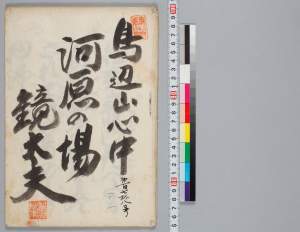 鳥辺山心中
河原の場
鏡太夫